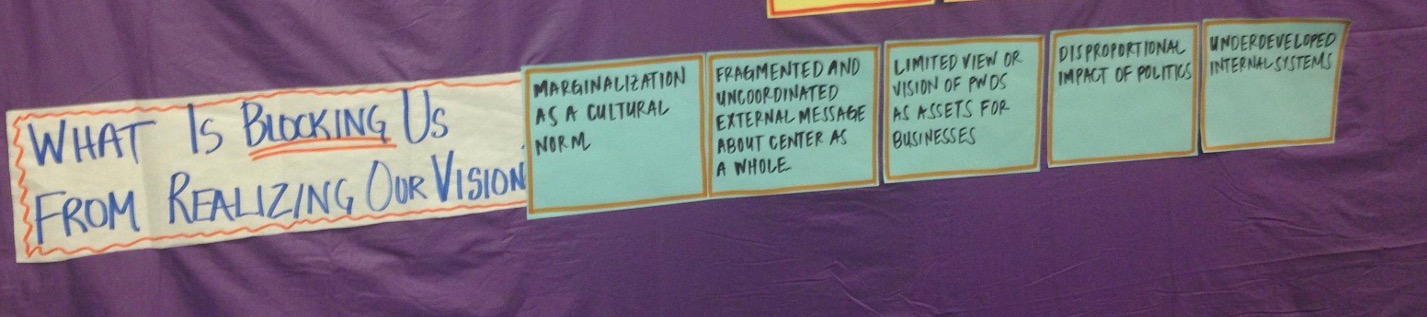 WHAT IS BLOCKING US
FROM REALIZING OUR VISION
MARGINALIZATION
AS A CULTURAL
NORM
FRAGMENTED AND
UNCOORDINATED
EXTERNAL MESSAGE
ABOUT CENTER AS
A WHOLE
LIMITED VIEW OR
VISION OF PWDS
AS ASSETS FOR
BUSINESSES
DISPROPORTIONAL
IMPACT OF POLITICS
UNDERDEVELOPED
INTERNAL SYSTEMS